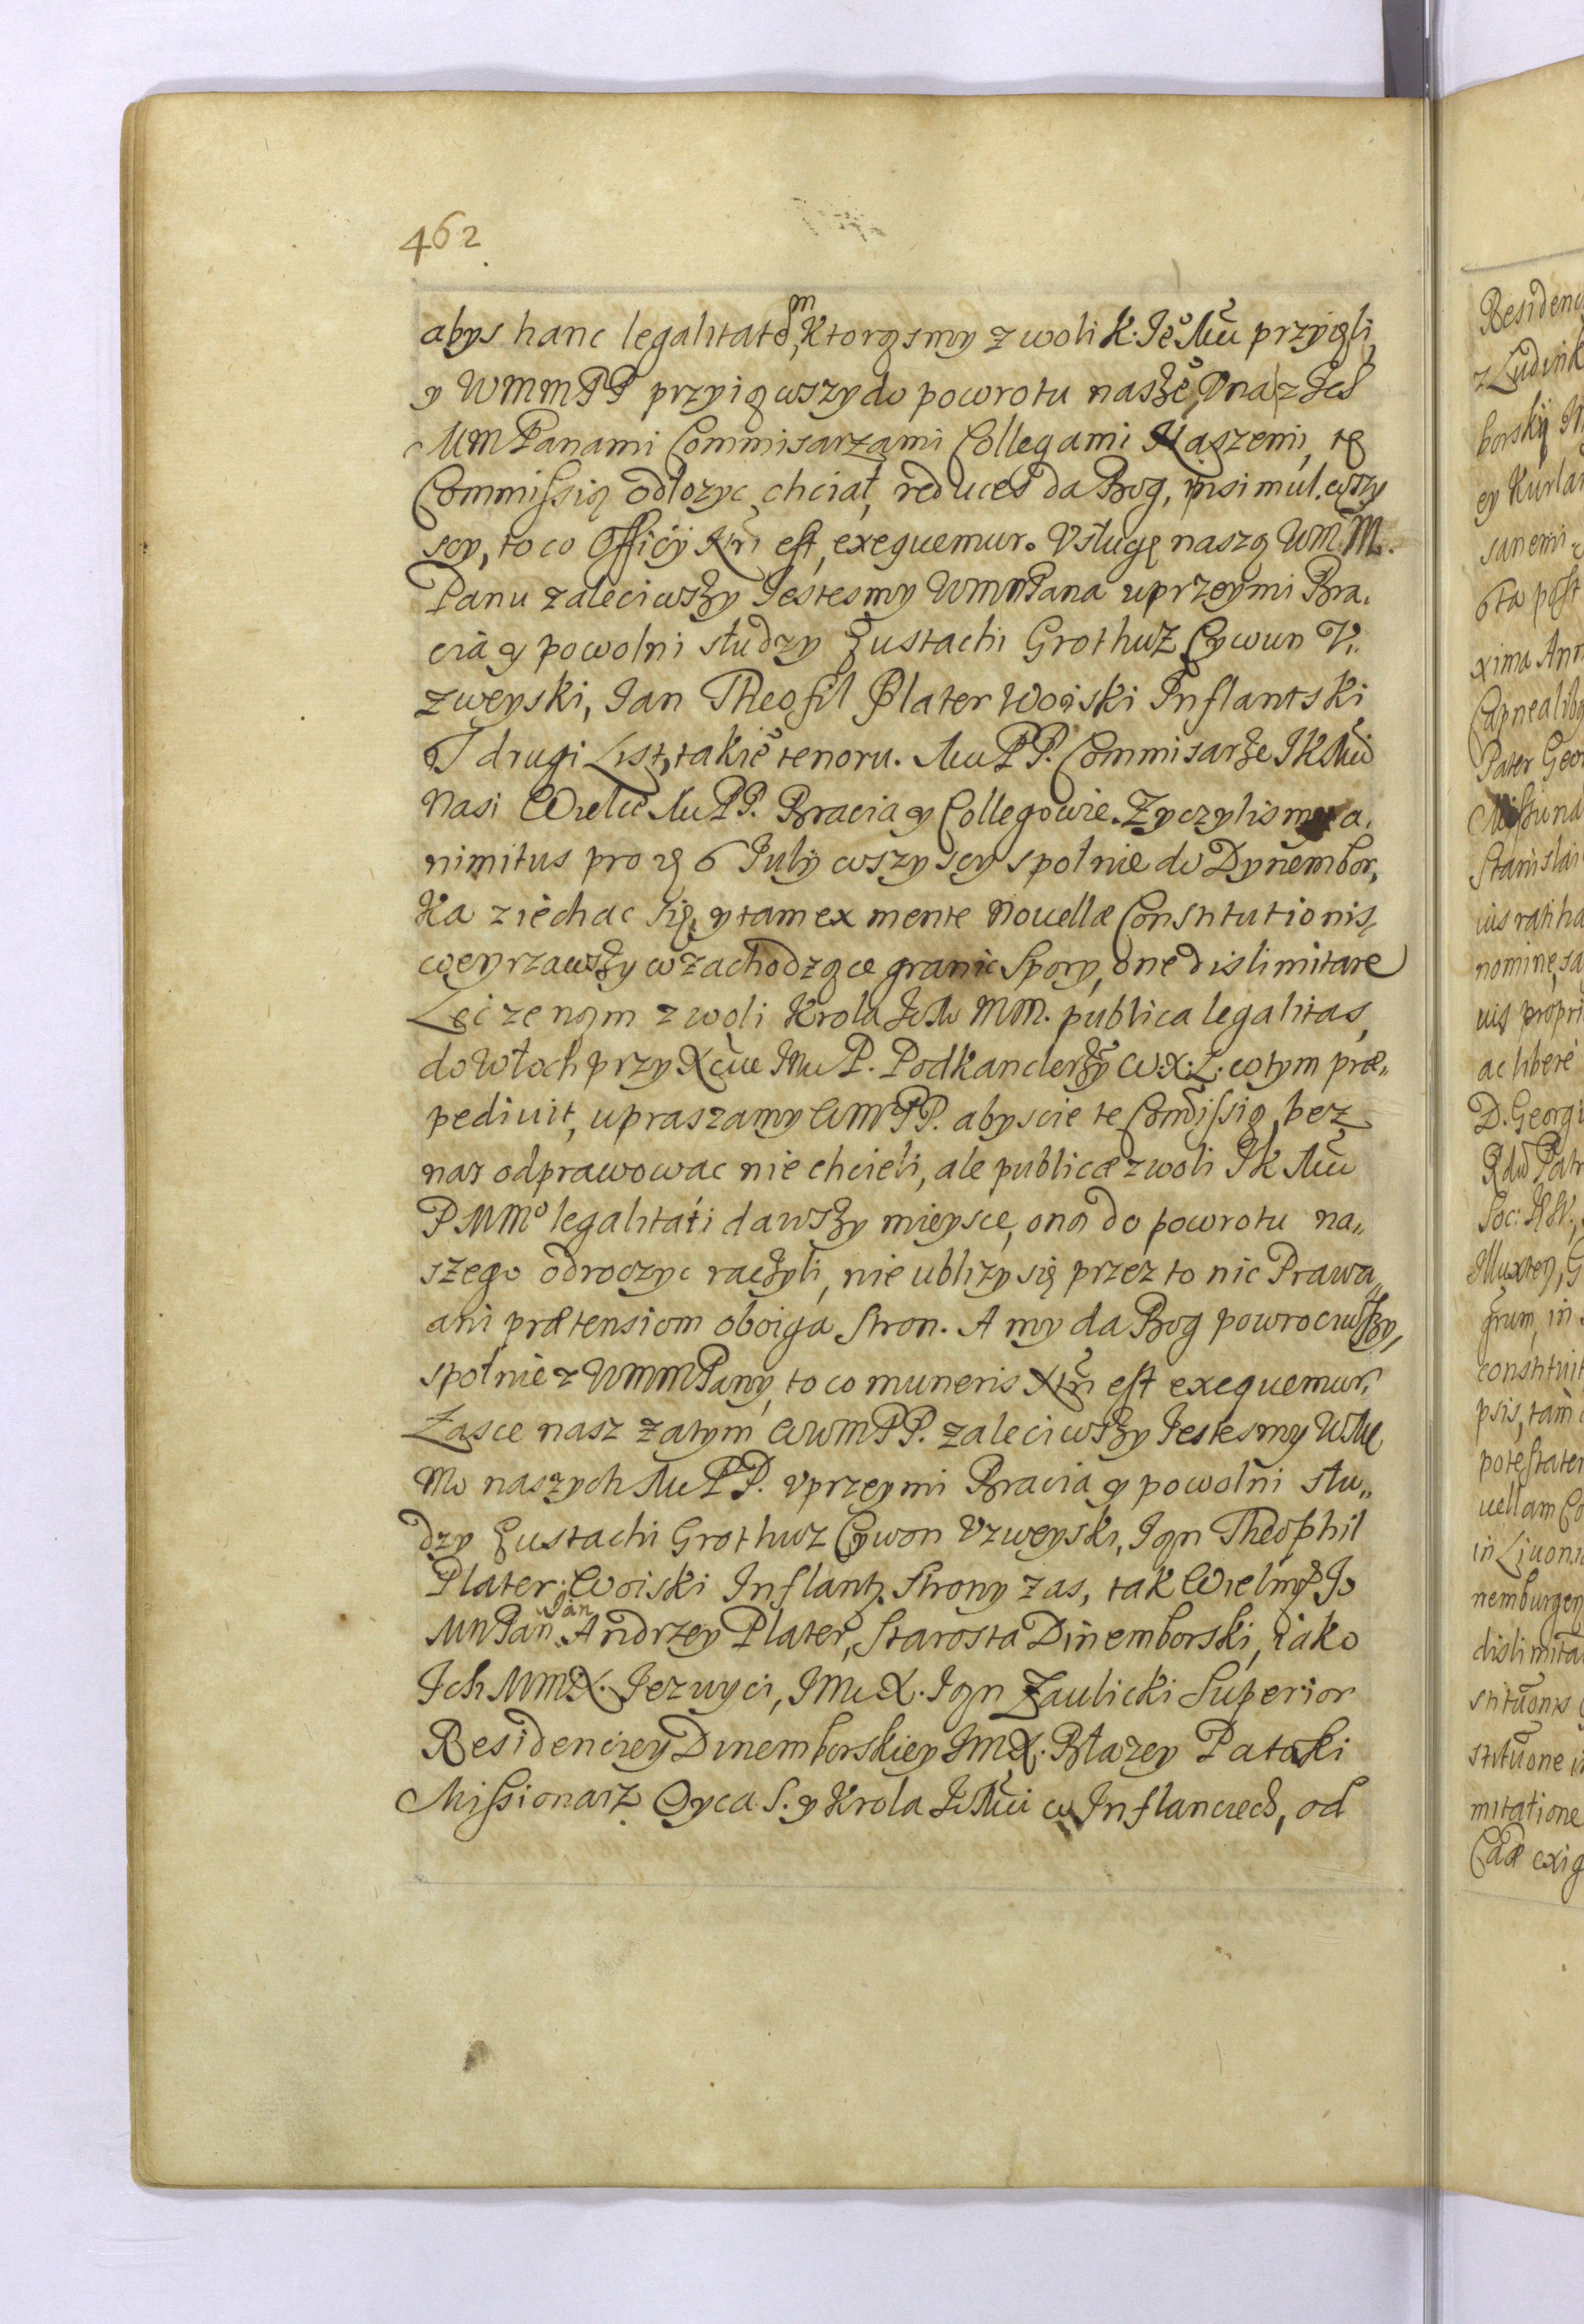 462
abys hanc legalitatem, ktorąsmy z woli K. Je° Mći przyięli,
y WMMPP przyiąwszy do powrotu nasze° Ona z Ich
MMPanami Commisarzami Collegami Naszemi, tę
Commissią odłozyc chciał, reduces da Bog, insimul wszy
scy, to co Officij nri est, exequemur. Vsługę naszą WMM.
Panu zaleciwszy Jestesmy WMMPana uprzeymi Bra,
cia y powolni słudzy Eustachi Grothuz Cywun V,
zweyski, Jan Theofil Plater Woiski Inflantski
I drugi List, takie° tenoru. Mći PP. Commisarze JKMći
Nasi Wielce Mći PP. Bracia y Collegowie. Zyczylismy a,
nimitus pro 6 Julij wszyscy społnie do Dynembor,
ka ziechac się, y tam ex mente Nouellæ Constitutionis,
weyrzawszy w zachodzące granic Spory, one dislimitare
Lec ze nąm z woli Krola JeM MM. publica legalitas,
do Włoch przy Xćiu JMci P. Podkanclerzy W.X.L. w tym præ„
pediuit, upraszamy WMPP. abyscie te Comissią bez
nas odprawowac nie chcieli, ale publicæ z woli JKMći
PMM° legalitati dawszy mieysce, oną do powrotu na„
szego odroczyc raczyli, nie ublizy się przez to nic Prawa„
ani prætensiom oboiga Stron. A my da Bog powrociwszy,
społnie z WMMPany, to co muneris nri est exequemur,
Łasce nasz zatym WWMPP. zaleciwszy Jestesmy WMę
Mo naszych Mći PP. vprzeymi Bracia y powolni słu„
dzy Eustachi Grothuz Cywon Vzweyski, Jąn Theophil
Plater Woiski Inflantz. Strony zas, tak Wielmo Je
MMPan Jan Andrzey Plater, Starosta Dinemborski, iako
Ich MMX. Jezuyci, JMci X. Jąn Zaulicki Superior
Residenciey Dinemborskiey JMX. Błazey Pataki
Missionarz Oyca S. y Krola JeMći w Inflanciech, od